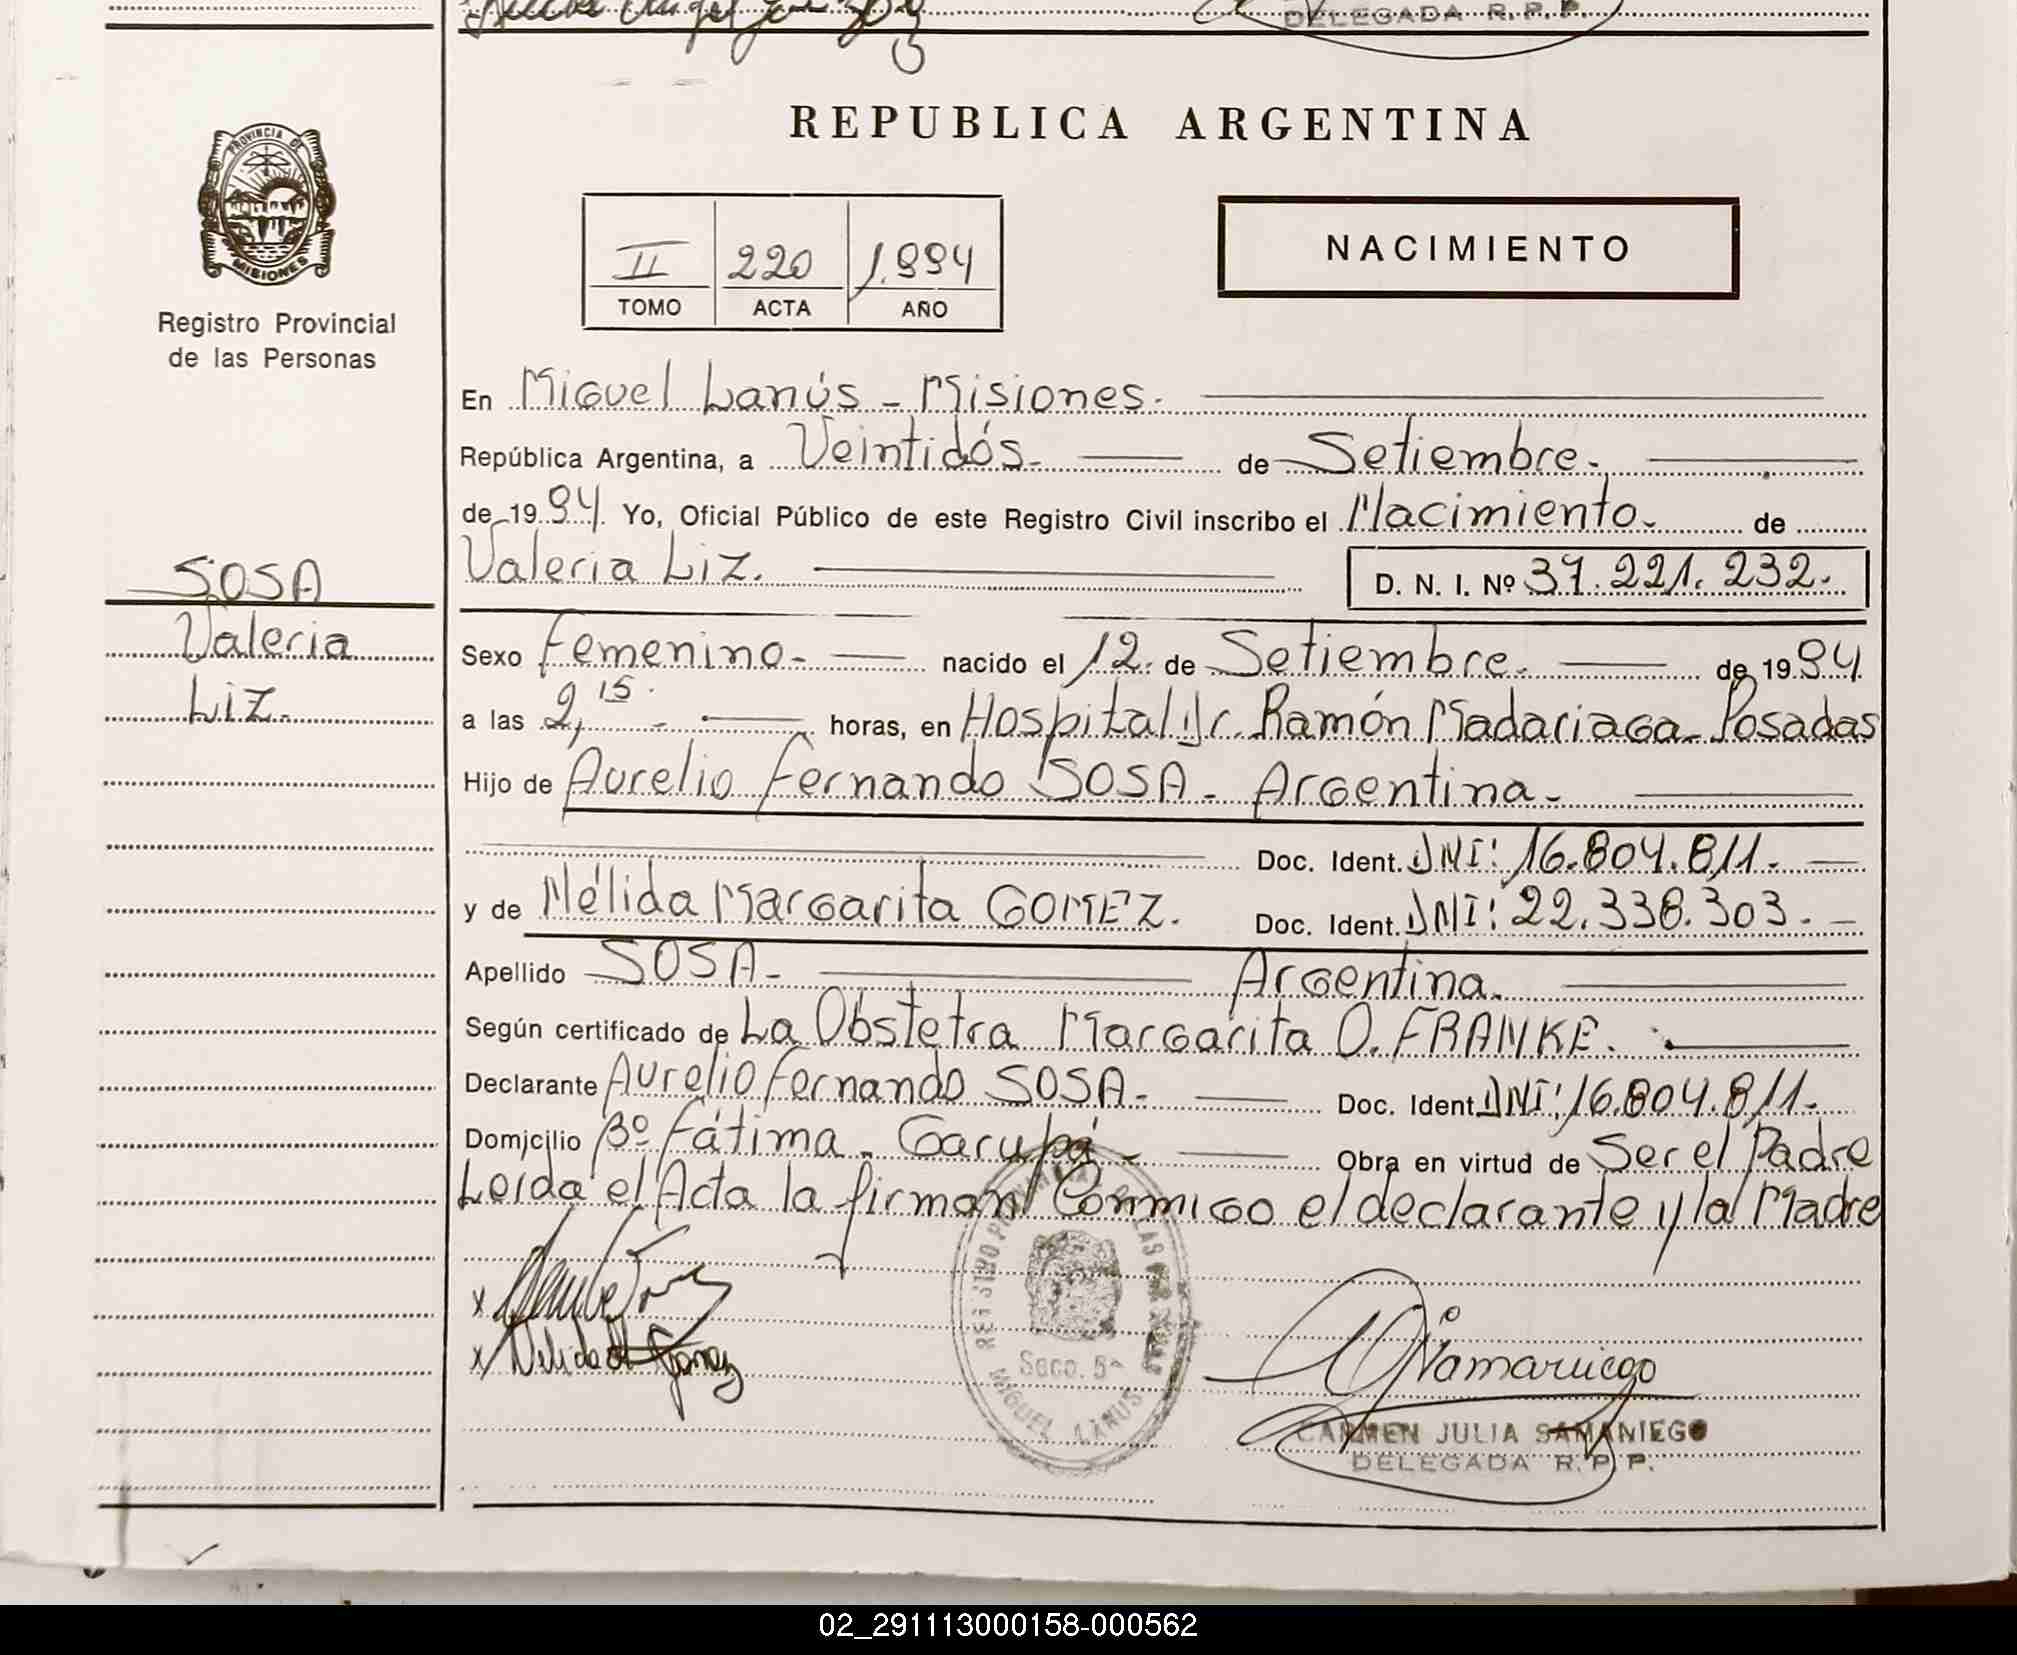 DELEGADA R.P.P.
REPUBLICA ARGENTINA
PROVINCIA DE
MISIONES
Registro Provincial
de las Personas
II 220 1.994
TOMO ACTA AÑO
NACIMIENTO
En Miguel Lanús - Misiones.
República Argentina, a Veintidós. de Setiembre.
de 1994. Yo, Oficial Público de este Registro Civil inscribo el Nacimiento. de
Valeria Liz. D. N. I. Nº 37.221.232.
SOSA
Valeria
Liz.
Sexo Femenino. nacido el 12. de Setiembre. de 1994.
a las 2,15. horas, en Hospital Dr. Ramón Madariaga - Posadas
Hijo de Aurelio Fernando SOSA - Argentina.
Doc. Ident. DNI: 16.804.811.
y de Nélida Margarita GOMEZ. Doc. Ident. DNI: 22.338.303.
Apellido SOSA. Argentina.
Según certificado de La Obstetra Margarita O. FRANKE.
Declarante Aurelio Fernando SOSA. Doc. Ident. DNI: 16.804.811.
Domicilio Bº Fátima - Garupá. Obra en virtud de Ser el Padre
Leida el Acta la firman Conmigo el declarante y la Madre
x
x Nelida M Gomez
REGISTRO PROVINCIAL DE LAS PERSONAS
Secc. 5ª
MIGUEL LANUS
CARMEN JULIA SAMANIEGO
DELEGADA R.P.P.
02_291113000158-000562